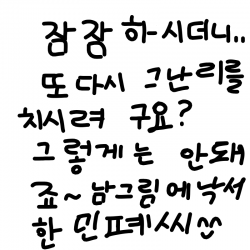 잠잠 하시더니..
또 다시 그난리를
치시려 구요?
그렇게는 안돼
죠~ 남그림에낙서
한 민폐씨^^